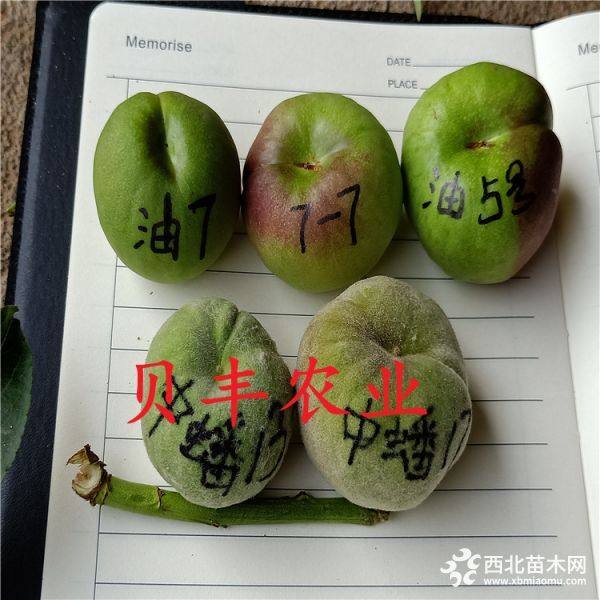 Memorise
DATE
PLACE
油7
7-7
油5号
贝丰农业
中蟠13
中蟠1
西北苗木网
www.xbmiaomu.com